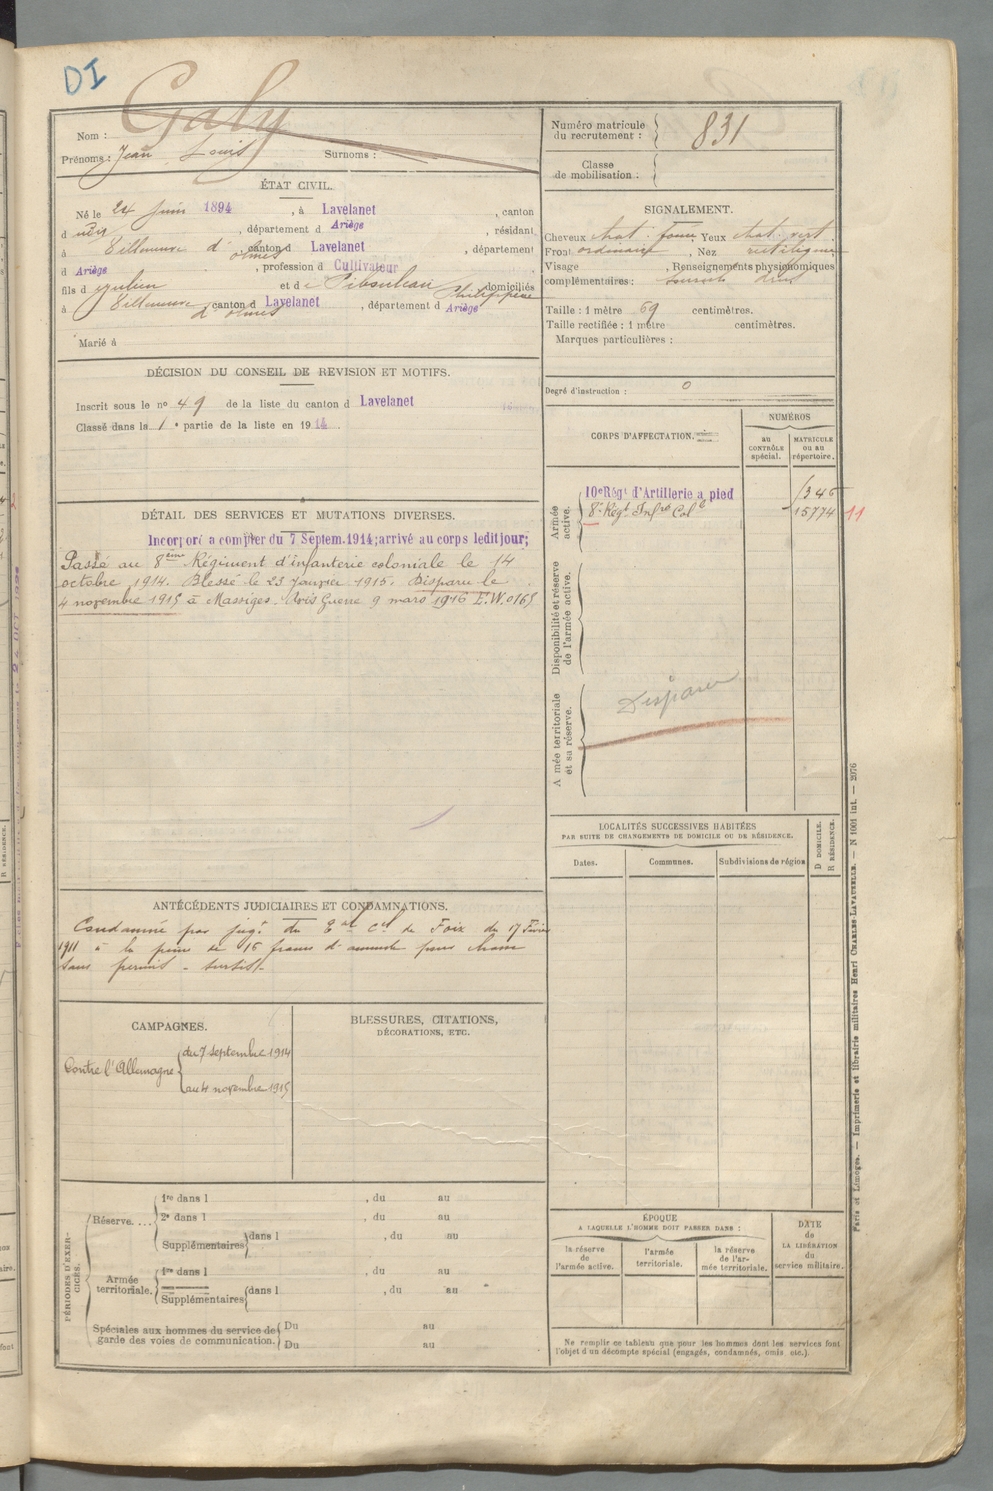 DI
Galy
Nom :
Prénoms : Jean Louis Surnoms :
Numéro matricule du recrutement : 831
Classe de mobilisation :
ÉTAT CIVIL.
Né le 24 Juin 1894, à Lavelanet, canton
d udit, département d Ariège, résidant
à Villeneuve d'olmes, canton d Lavelanet, département
d Ariège, profession d Cultivateur
fils d et de Philippine domiciliés
à Villeneuve d'olmes, canton d Lavelanet, département d Ariège
Marié à
SIGNALEMENT.
Cheveux chat. foncé, Yeux chat. vert.
Front ordinaire, Nez rectiligne
Visage , Renseignements physionomiques
complémentaires : sourcils
Taille : 1 mètre 69 centimètres.
Taille rectifiée : 1 mètre centimètres.
Marques particulières :
Degré d'instruction : 0
DÉCISION DU CONSEIL DE REVISION ET MOTIFS.
Inscrit sous le nº 49 de la liste du canton d Lavelanet
Classé dans la 1e partie de la liste en 1914.
CORPS D'AFFECTATION.
NUMÉROS
au CONTRÔLE spécial.
MATRICULE ou au répertoire.
Armée active.
10e Régt d'Artillerie a pied 1346
8e Régt Infrie Colle 15774 11
Disponibilité et réserve de l'armée active.
A mée territoriale et sa réserve.
Disparu
DÉTAIL DES SERVICES ET MUTATIONS DIVERSES.
Incorporé a compter du 7 Septem. 1914; arrivé au corps ledit jour;
Passé au 8ème Régiment d'infanterie coloniale le 14
octobre 1914. Blessé le 23 Janvier 1915. Disparu le
4 novembre 1915 à Massiges. Avis Guerre 9 mars 1916 E.W. 0165
LOCALITÉS SUCCESSIVES HABITÉES
PAR SUITE DE CHANGEMENTS DE DOMICILE OU DE RÉSIDENCE.
Dates. Communes. Subdivisions de région
D DOMICILE.
R RÉSIDENCE.
ANTÉCÉDENTS JUDICIAIRES ET CONDAMNATIONS.
Condamné par jugt du Bal Cel de Foix du 17 Février
1911 à la peine de 16 francs d'amende pour chasse
sans permis - sursis.
CAMPAGNES.
Contre l'Allemagne
du 7 septembre 1914
au 4 novembre 1915
BLESSURES, CITATIONS,
DÉCORATIONS, ETC.
PÉRIODES D'EXERCICES.
Réserve....
1re dans l , du au
2e dans l , du au
Supplémentaires dans l , du au
Armée territoriale.
1re dans l , du au
Supplémentaires dans l , du au
Spéciales aux hommes du service de
garde des voies de communication.
Du au
Du au
ÉPOQUE
A LAQUELLE L'HOMME DOIT PASSER DANS :
la réserve de l'armée active.
l'armée territoriale.
la réserve de l'armée territoriale.
DATE de LA LIBÉRATION du service militaire.
Ne remplir ce tableau que pour les hommes dont les services font
l'objet d'un décompte spécial (engagés, condamnés, omis etc.).
Paris et Limoges. — Imprimerie et librairie militaires Henri CHARLES-LAVAUZELLE. — N 1001 int. — 2076